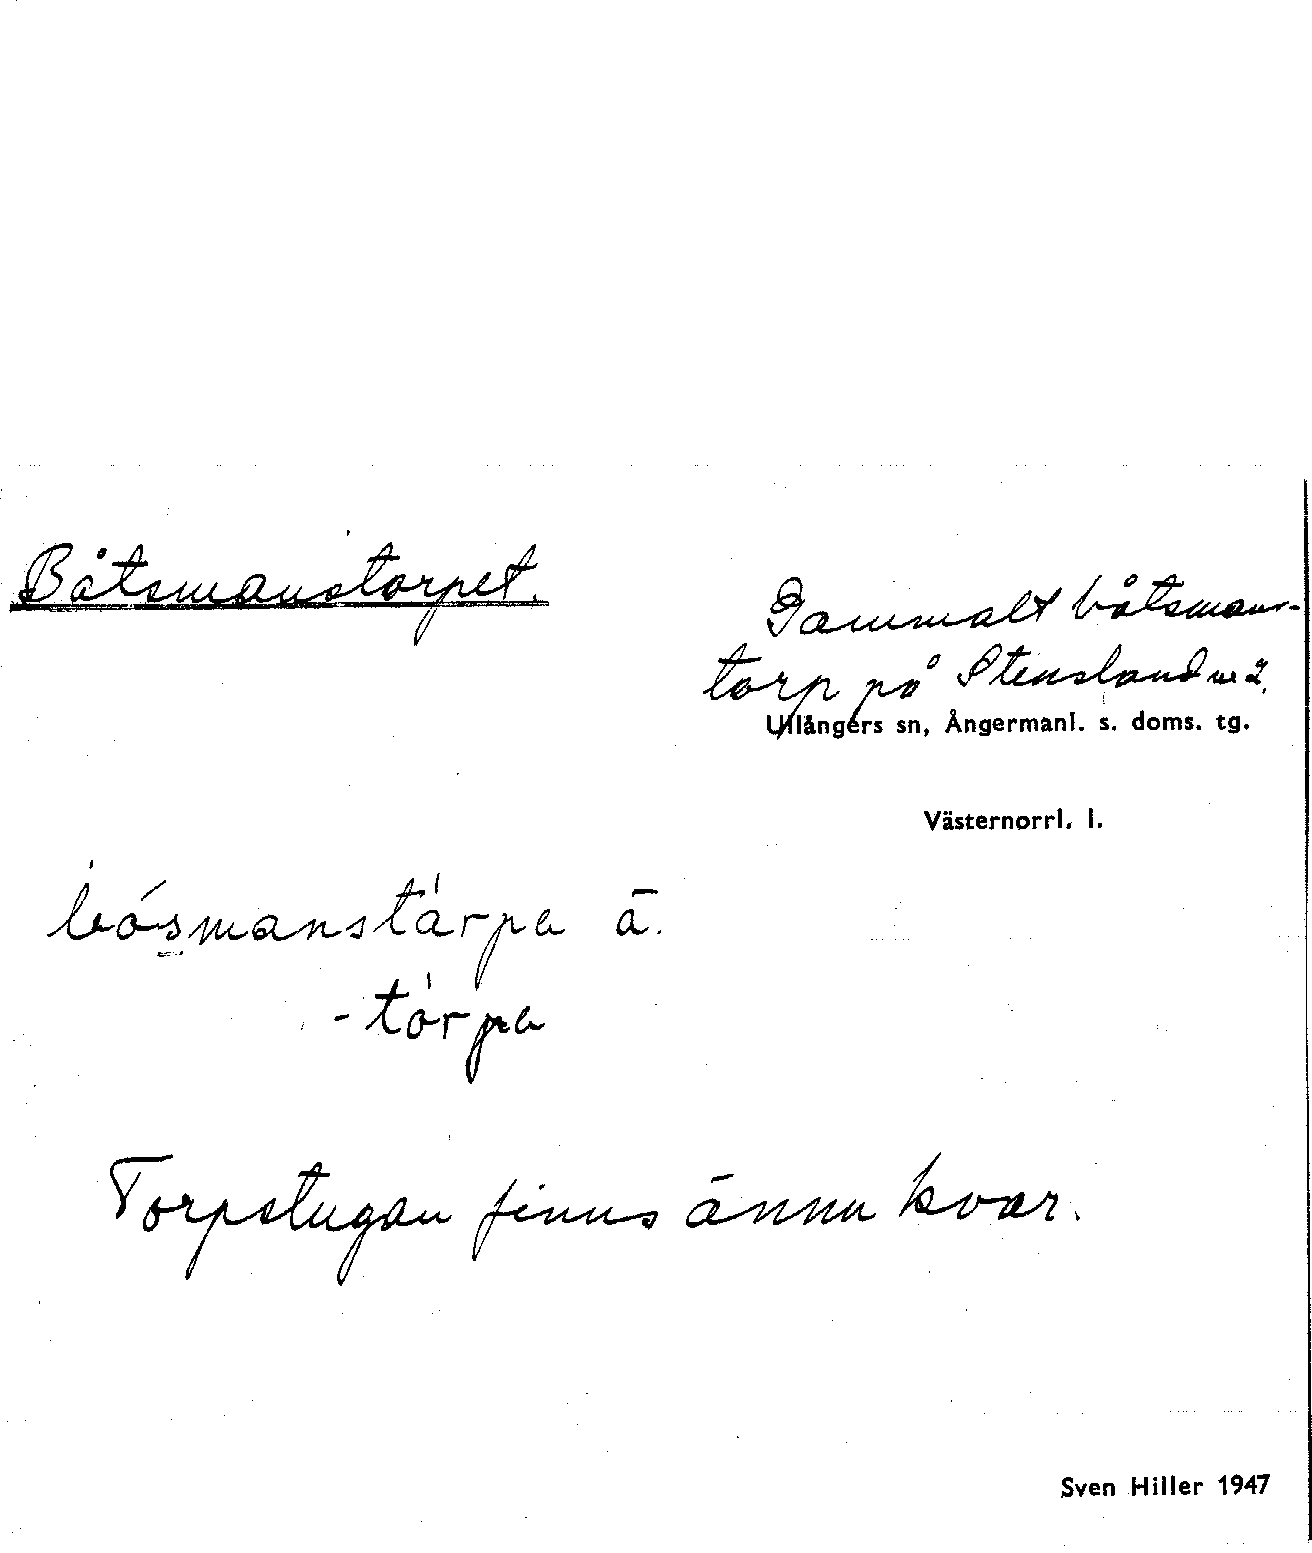 Båtsmanstorpet.
Gammalt båtsmans-
torp på Stensland nr 2.
Ullångers sn, Ångermanl. s. doms. tg.
Västernorrl. l.
bósmanstárpa ä.
-tórpa
Torpstugan finns ännu kvar.
Sven Hiller 1947